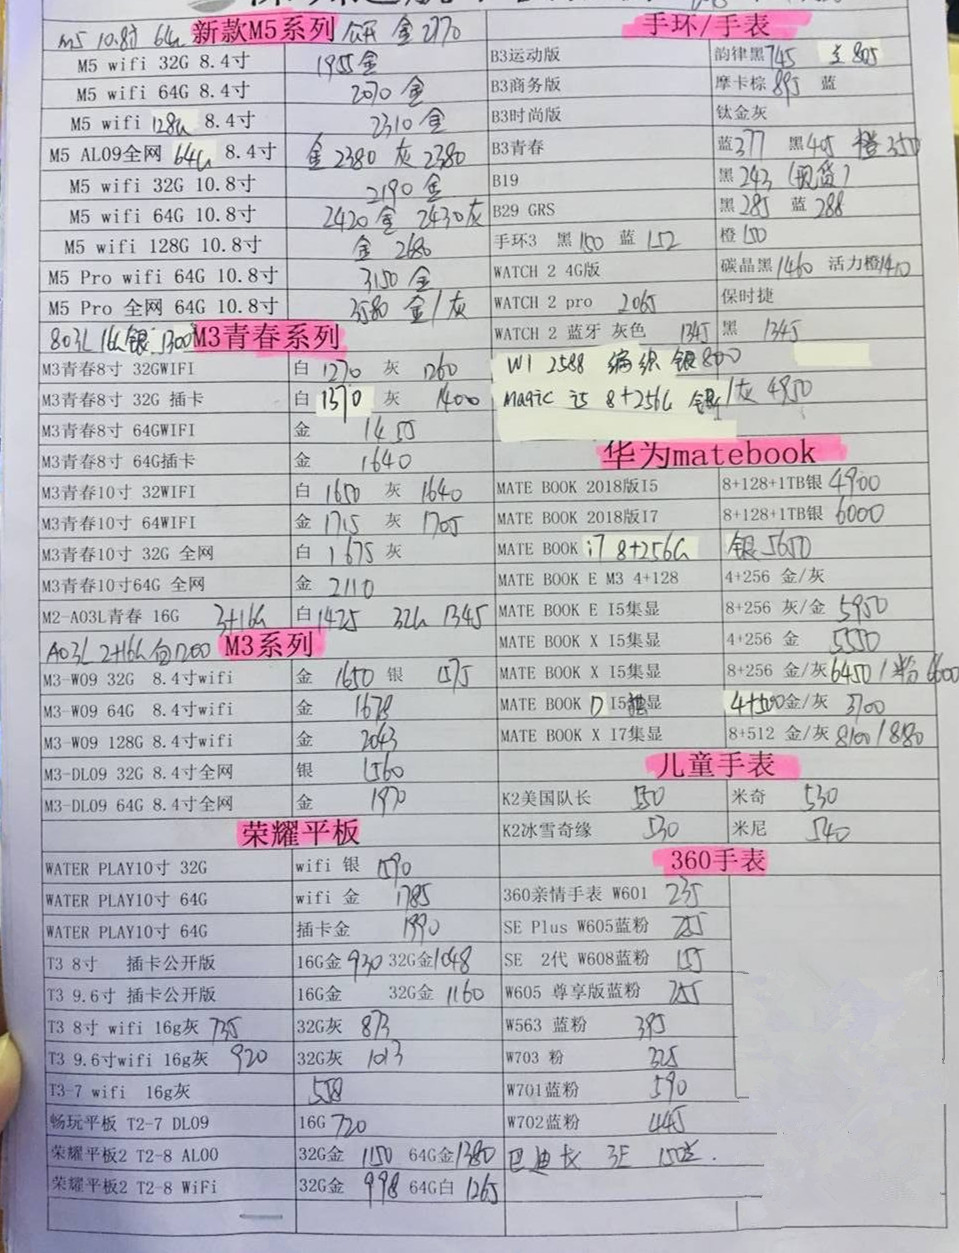 m5 10.8寸 64G 新款M5系列 金 2770
M5 wifi 32G 8.4寸 1955金
M5 wifi 64G 8.4寸 2070 金
M5 wifi 128G 8.4寸 2310 金
M5 AL09全网 64G 8.4寸 金 2380 灰 2380
M5 wifi 32G 10.8寸 2190 金
M5 wifi 64G 10.8寸 2420 金 2430灰
M5 wifi 128G 10.8寸 金 2680
M5 Pro wifi 64G 10.8寸 3150 金
M5 Pro 全网 64G 10.8寸 3580 金/灰
803L 16G银 1300 M3青春系列
M3青春8寸 32GWIFI 白 1270 灰 1260
M3青春8寸 32G 插卡 白 1370 灰 1400
M3青春8寸 64GWIFI 金 1455
M3青春8寸 64G插卡 金 1640
M3青春10寸 32WIFI 白 1650 灰 1640
M3青春10寸 64WIFI 金 1715 灰 1705
M3青春10寸 32G 全网 白 1675 灰
M3青春10寸64G 全网 金 2110
M2-A03L青春 16G 3+16G 白 1425 32G 1345
A03L 2+16G 白1200 M3系列
M3-W09 32G 8.4寸wifi 金 1650 银 1575
M3-W09 64G 8.4寸wifi 金 1678
M3-W09 128G 8.4寸wifi 金 2043
M3-DL09 32G 8.4寸全网 银 1560
M3-DL09 64G 8.4寸全网 金 1970
荣耀平板
WATER PLAY10寸 32G wifi 银 1590
WATER PLAY10寸 64G wifi 金 1785
WATER PLAY10寸 64G 插卡金 1990
T3 8寸 插卡公开版 16G金 930 32G金1048
T3 9.6寸 插卡公开版 16G金 32G金 1160
T3 8寸 wifi 16g灰 735 32G灰 873
T3 9.6寸wifi 16g灰 920 32G灰 1013
T3-7 wifi 16g灰 558
畅玩平板 T2-7 DL09 16G 720
荣耀平板2 T2-8 AL00 32G金 1150 64G金1380
荣耀平板2 T2-8 WiFi 32G金 998 64G白 1265
手环/手表
B3运动版 韵律黑745
B3商务版 摩卡棕 895 蓝
B3时尚版 钛金灰
B3青春 蓝377 黑405 橙 350
B19 黑 243 (现货)
B29 GRS 黑 285 蓝 288
手环3 黑 150 蓝 152 橙 150
WATCH 2 4G版 碳晶黑1460 活力橙1410
WATCH 2 pro 2065 保时捷
WATCH 2 蓝牙 灰色 1345 黑 1345
W1 2588 编织 银800
Magic i5 8+256G 银/灰 4950
华为matebook
MATE BOOK 2018版I5 8+128+1TB银 4900
MATE BOOK 2018版I7 8+128+1TB银 6000
MATE BOOK i7 8+256G 银 5650
MATE BOOK E M3 4+128 4+256 金/灰
MATE BOOK E I5集显 8+256 灰/金 5950
MATE BOOK X I5集显 4+256 金 5550
MATE BOOK X I5集显 8+256 金/灰 6450/粉 6600
MATE BOOK D I5独显 4+500金/灰 3700
MATE BOOK X I7集显 8+512 金/灰 8100/8180
儿童手表
K2美国队长 550 米奇 530
K2冰雪奇缘 530 米尼 540
360手表
360亲情手表 W601 235
SE Plus W605蓝粉 255
SE 2代 W608蓝粉 155
W605 尊享版蓝粉 255
W563 蓝粉 395
W703 粉 325
W701蓝粉 590
W702蓝粉 445
巴迪龙 3E 150蓝.